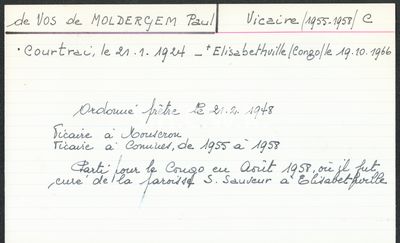 de VOS de MOLDERGEM Paul Vicaire/1955-1958/C
• Courtrai, le 21.1.1924 _ + Elisabethville/Congo/le 19.10.1966
Ordonné prêtre le 21.2.1948
Vicaire à Mouscron
Vicaire à Comines, de 1955 à 1958
Parti pour le Congo en Août 1958, où il fut
curé de la paroisse S. Sauveur à Elisabethville